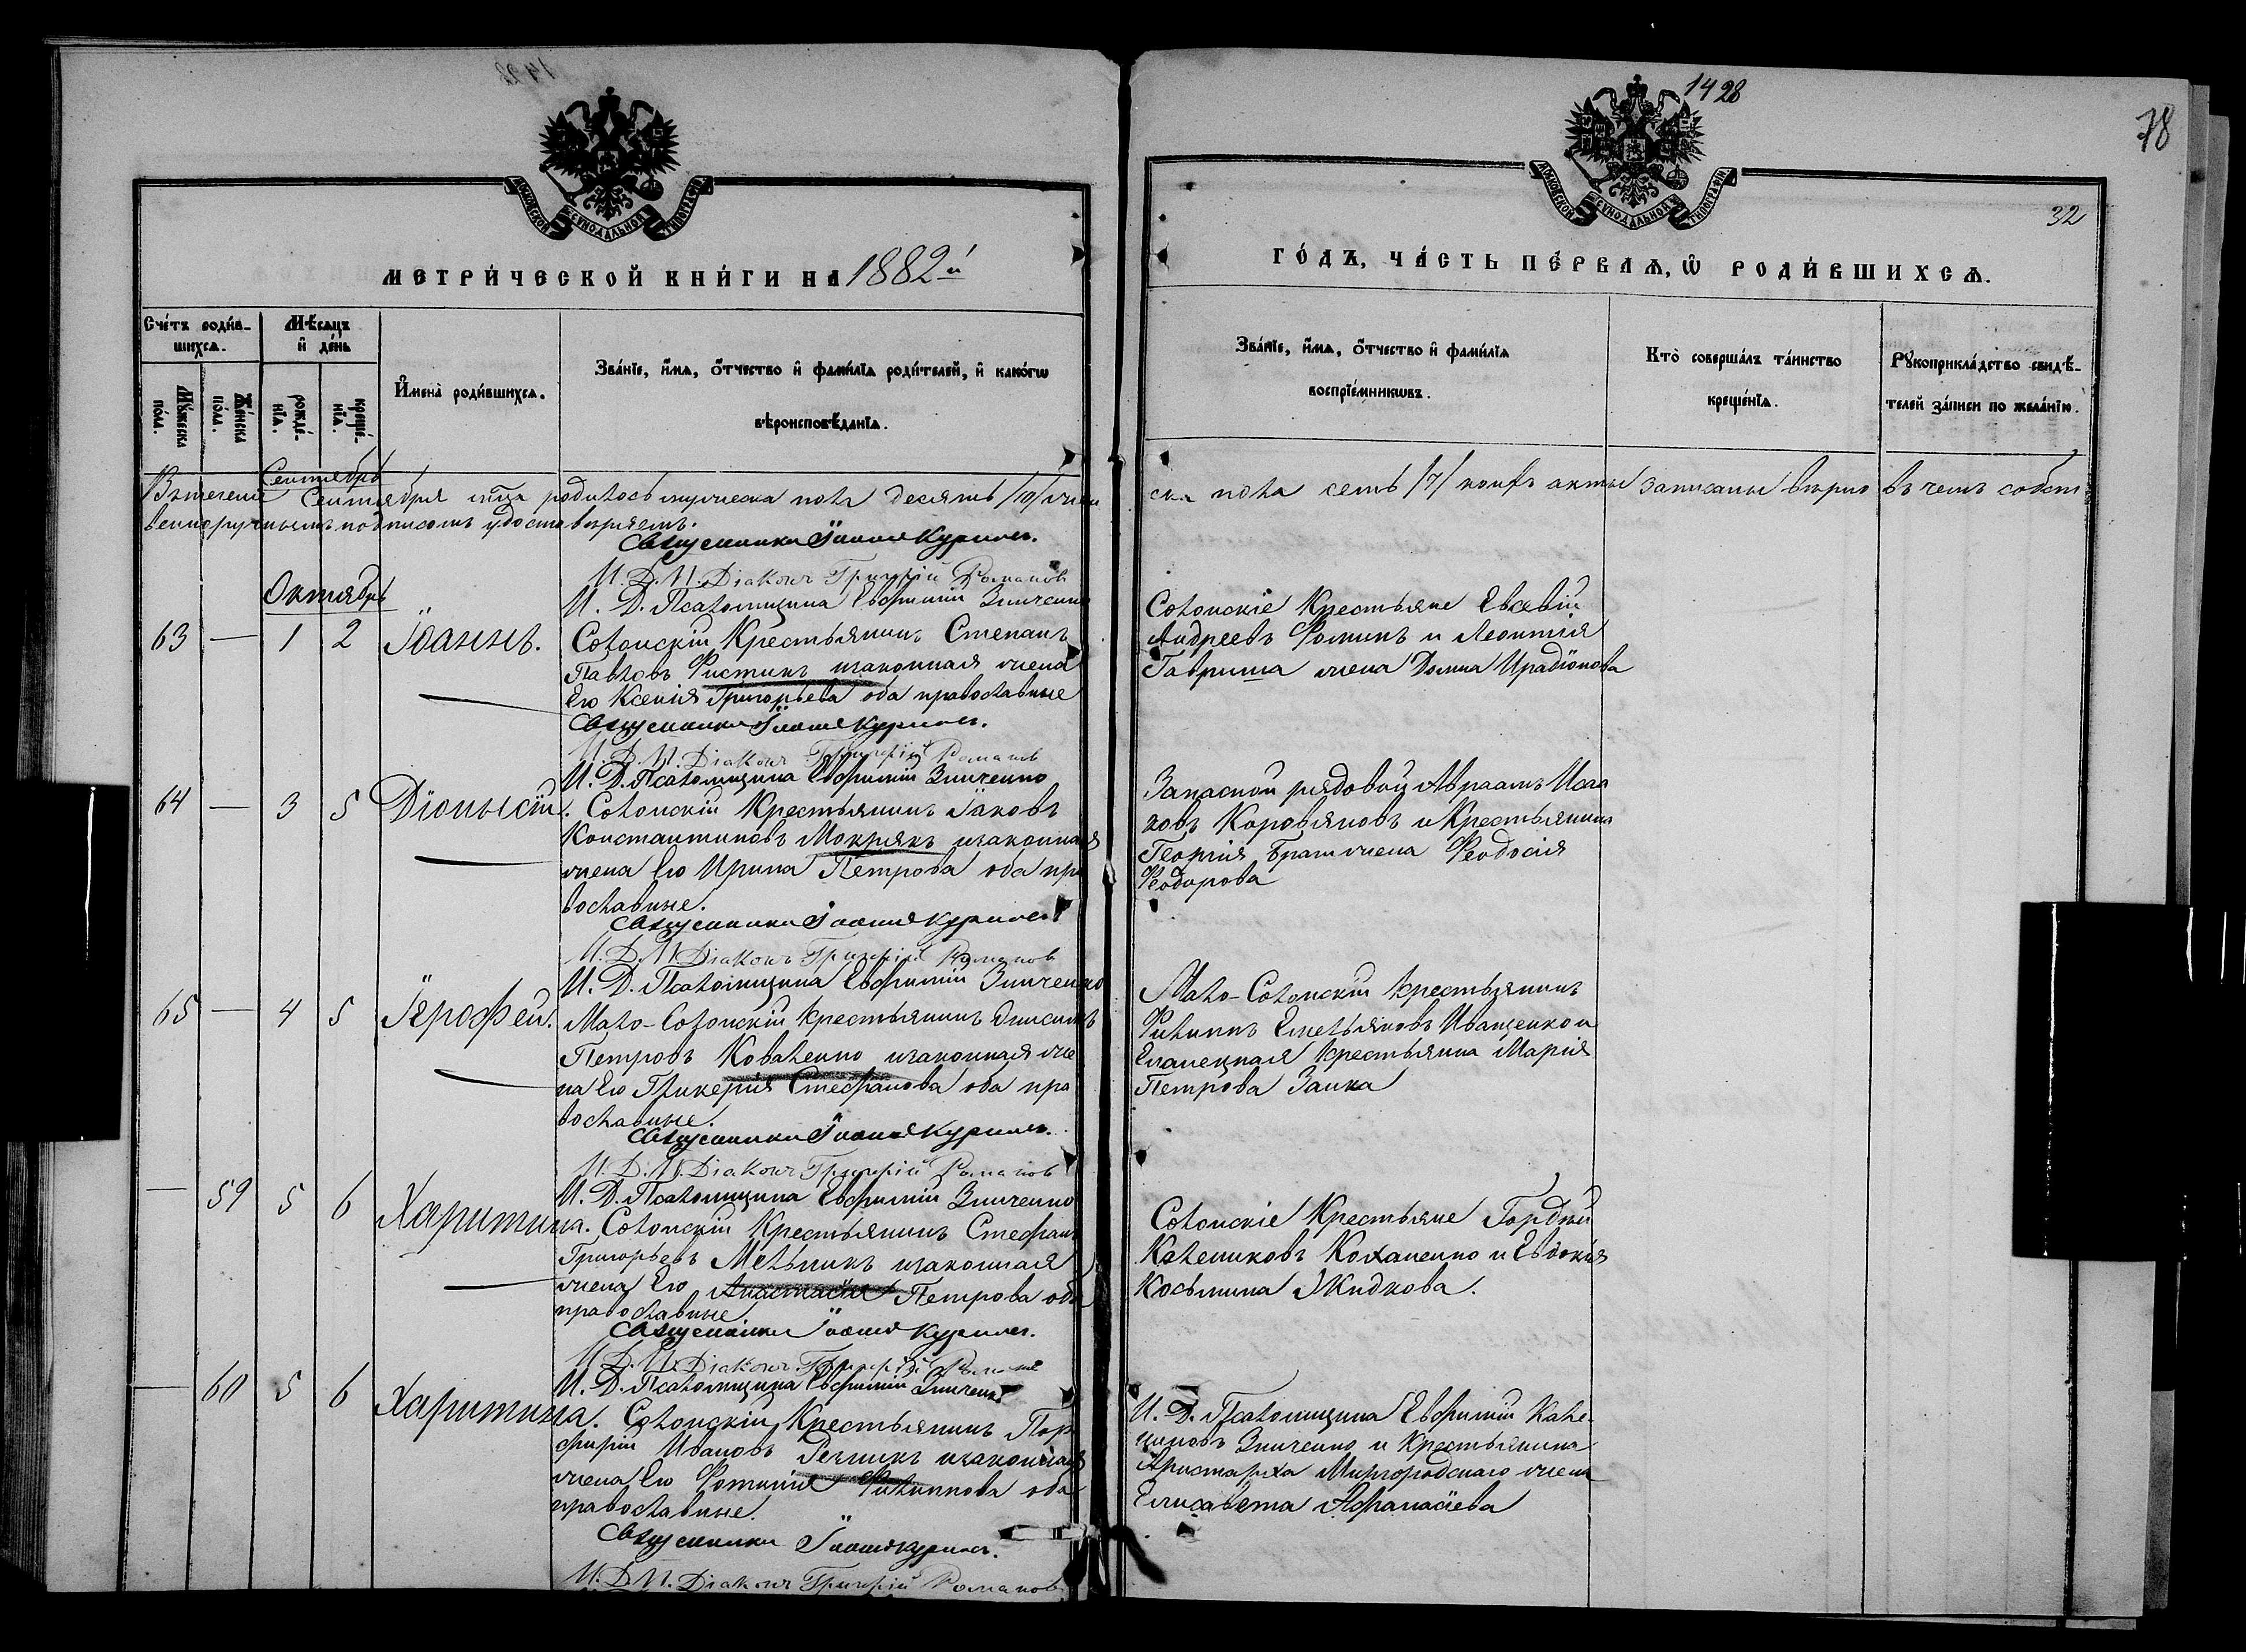 1428
78
32
МОСКОВСКОЙ СѴНОДАЛЬНОЙ ТИПОГРАФІИ
МОСКОВСКОЙ СѴНОДАЛЬНОЙ ТИПОГРАФІИ
МЕТРИ́ЧЕСКОЙ КНИ́ГИ НА 1882й
ГО́ДЪ, ЧА́СТЬ ПЕ́РВАЯ, Ѡ РОДИ́ВШИХСЯ.
Сче́тъ роди́в-
шихся.
Мѣ́сяцъ
и де́нь
Му́жеска
по́ла.
Же́нска
по́ла.
рожде́-
нїя.
креще́-
нїя.
Имена̀ роди́вшихся.
Зва́нїе, и́мя, о́тчество и фами́лїя роди́телей, и како́гѡ
вѣроисповѣ́данїя.
Зва́нїе, и́мя, о́тчество и фами́лїя
воспрїе́мникѡвъ.
Кто̀ соверша́лъ та́инство
креще́нїя.
Рꙋкоприкла́дство свидѣ́-
телей за́писи по жела́нїю.
Сентябрь
Втеченіе Сентября м-ца родилось мужеска пола десять /10/ жен
ска пола семь /7/ коихъ акты записаны вѣрно въ чемъ собст
венноручнымъ подписомъ удостовѣряемъ.
Священникъ Іоаннъ Курилов.
И. Д. П. Діаконъ Григорій Романов
И. Д. Псаломщика Евфимій Зинченко
Октябрь
63 — 1 2 Іоаннъ.
Солонскій Крестьянинъ Степанъ
Павловъ Фистикъ изаконная жена
Его Ксенія Григорьева оба православные
Солонскіе Крестьяне Евсевій
Андреевъ Фоминъ и Леонтія
Гавриша жена Домна Ирадіонова
Священникъ Іоаннъ Курилов.
И. Д. П. Діаконъ Григорій Романов
И. Д. Псаломщика Евфимій Зинченко
64 — 3 5 Діонысій.
Солонскій Крестьянинъ Іаковъ
Константиновъ Мокрякъ изаконная
жена Его Ирина Петрова оба пра
вославные.
Запасной рядовой Авраамъ Исаа
ковъ Коровяковъ и Крестьянина
Георгія жена Феодосія
Феодорова
Священникъ Іоаннъ Курилов
И. Д. П. Діаконъ Григорій Романов
И. Д. Псаломщика Евфимій Зинченко
65 — 4 5 Іерофей.
Мало-Солонскій крестьянинъ Онисимъ
Петровъ Коваленко изаконная же
на Его Гликерія Стефанова оба пра
вославные.
Мало-Солонскій крестьянинъ
Филиппъ Емельяновъ Иващенко и
Еланецкая крестьянка Марія
Петрова Заика
Священникъ Іоаннъ Курилов.
И. Д. П. Діаконъ Григорій Романов
И. Д. Псаломщика Евфимій Зинченко
— 59 5 6 Харитина.
Солонскій Крестьянинъ Стефанъ
Григорьевъ Мельникъ изаконная
жена Его Анастасія Петрова оба
православные
Солонскіе Крестьяне Гордѣй
Калениковъ Коханенко и Евдокія
Косьмина Жидкова.
Священникъ Іоаннъ Курилов.
И. Д. П. Діаконъ Григорій Романов
И. Д. Псаломщика Евфимій Зинченко
— 60 5 6 Харитина.
Солонскій Крестьянинъ Пор
фирій Ивановъ Резникъ изаконная
жена Его Фотинія Филиппова оба
православные.
И. Д. Псаломщика Евфимій Кале-
никовъ Зинченко и Крестьянина
Аристарха Миргородскаго жена
Елисавета Афанасіева
Священникъ Іоаннъ Курилов.
И. Д. П. Діаконъ Григорій Романов